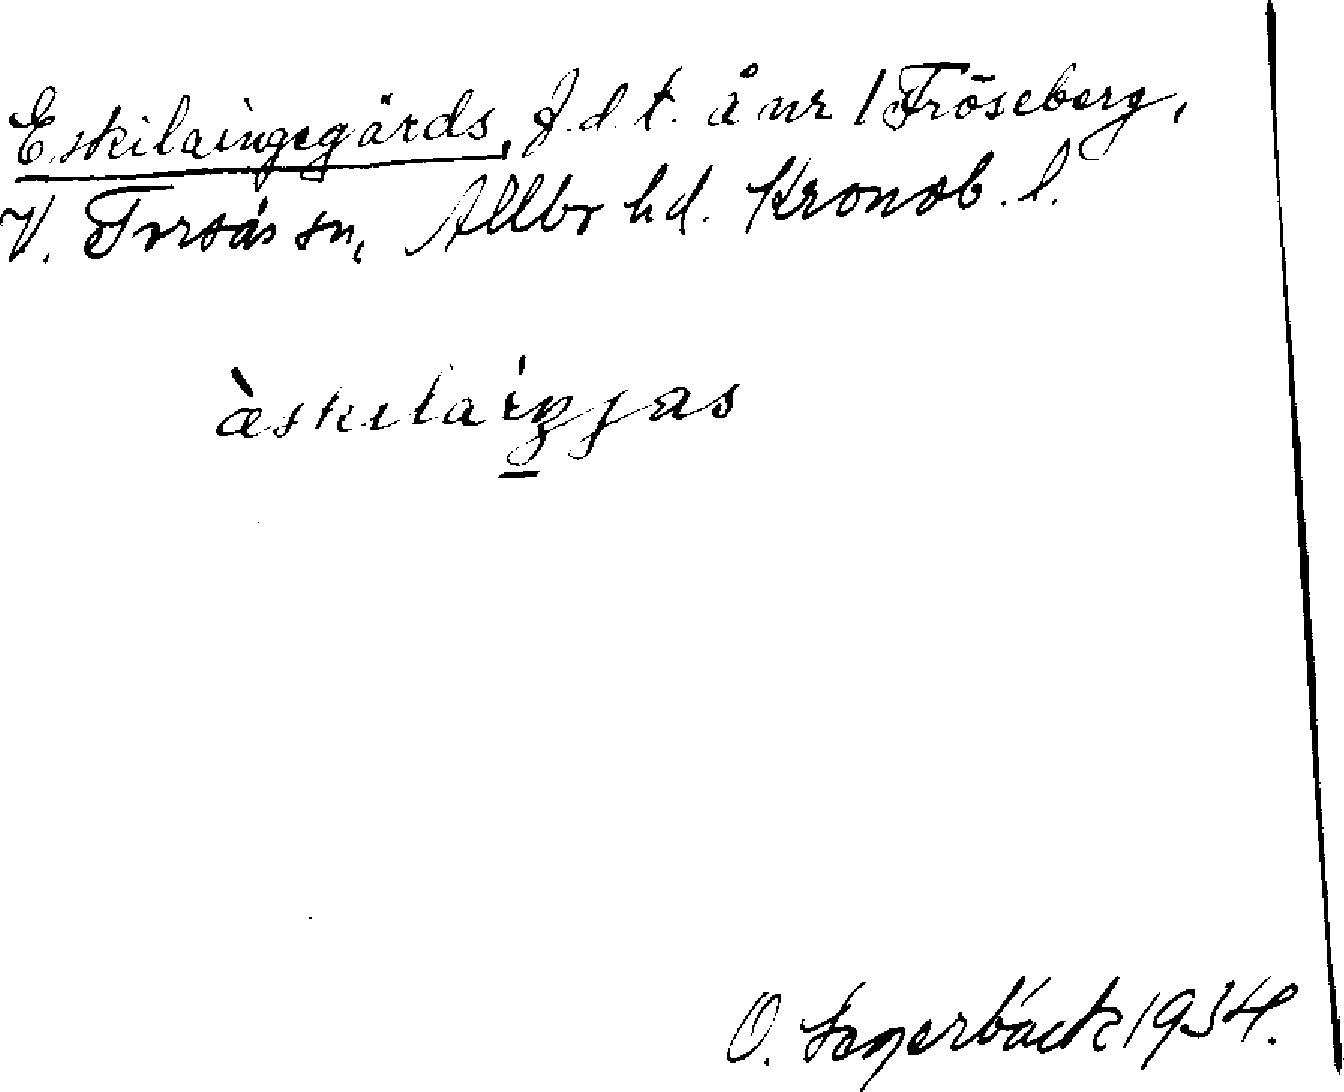 Eskilaingegärds, J.d.t. å nr 1 Fröseberg,
V. Torsås sn, Allbo hd. Kronob. l.
àskilaiŋjas
O. Sagerbäck 1934.